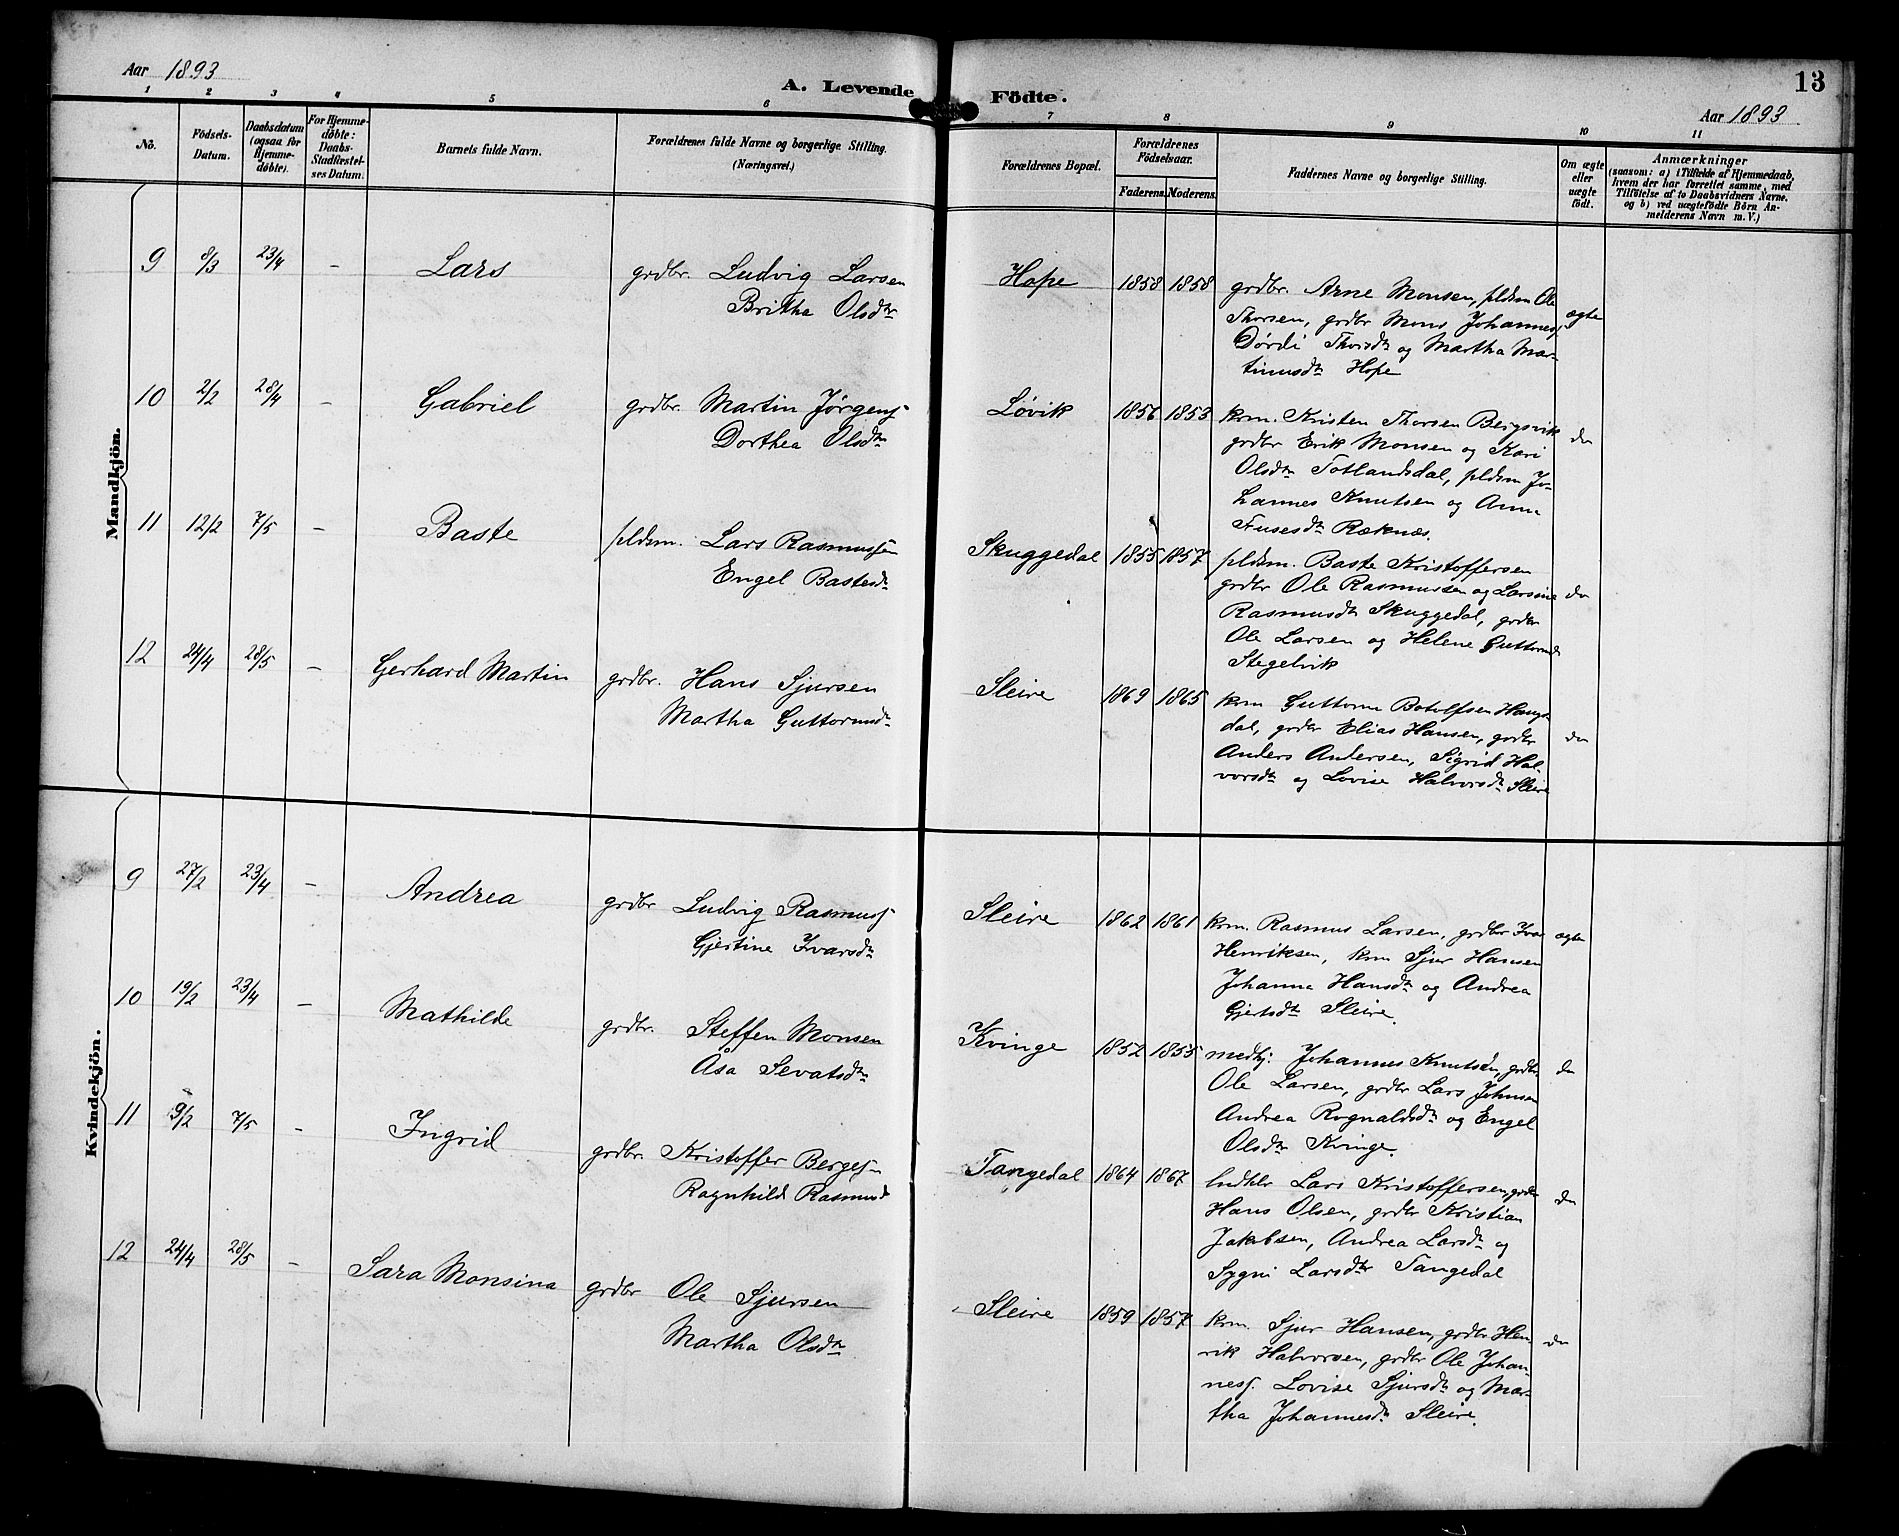 Aar 1893
A. Levende Födte.
13
Aar 1893
1 2 3 4 5 6 7 8 9 10 11
No.
Födsels-Datum.
Daabsdatum (ogsaa for Hjemme-døbte).
For Hjemme-døbte: Daabs-Stadfæstel-ses Datum.
Barnets fulde Navn.
Forældrenes fulde Navne og borgerlige Stilling.
(Næringsvei.)
Forældrenes Bopæl.
Forældrenes Födselsaar.
Faderens. Moderens.
Faddernes Navne og borgerlige Stilling.
Om ægte eller uægte födt.
Anmærkninger
(saasom: a) i Tilfælde af Hjemmedaab,
hvem der har forrettet samme, med
Tilföielse af to Daabsvidners Navne.
og b) ved uægtefödte Börn An-
melderens Navn m. V.)
Mandkjön.
9 8/3 23/4 - Lars grdbr. Ludvig Larsen
Britha Olsdtr
Hope 1858 1858 grdbr. Arne Monsen, pldsm Ole
Thorsen, grdbr Mons Johannes. ægte
Dørdi Thorsdtr og Martha Mar-
tinusdtr Hope
10 2/2 28/4 - Gabriel grdbr. Martin Jørgens.
Dorthea Olsdtr
Løvik 1856 1853 krm. Kristen Thorsen Bergsvik
grdbr Erik Monsen og Kari do
Olsdtr Totlandsdal, pldsm Jo-
hannes Knutsen og Anna
Fusesdtr Ræknæs.
11 12/2 7/5 - Baste pldsm. Lars Rasmussen
Engel Bastesdtr
Skuggedal 1855 1857 pldsm. Baste Kristoffersen
grdbr Ole Rasmussen og Larsine do
Rasmusdtr Skuggedal, grdbr
Ole Larsen og Helene Guttormsd
Stegelvik
12 24/4 28/5 - Gerhard Martin grdbr. Hans Sjursen
Martha Guttormsdtr
Sleire 1869 1865 krm Guttorm Botolfsen Haugs-
dal, grdbr Elias Hansen, grdbr do
Anders Andersen, Sigrid Hal-
vorsdtr og Lovise Halvorsdtr Sleire
Kvindekjön.
9 27/2 23/4 - Andrea grdbr Ludvig Rasmuss.
Gjertine Ivarsdtr
Sleire 1862 1861 krm. Rasmus Larsen, grdbr Ivar ægte
Henriksen, krm Sjur Hansen
Johanna Hansdtr og Andrea
Gjertsdtr Sleire.
10 19/2 23/4 - Mathilde grdbr. Steffen Monsen
Åsa Sevatsdtr
Kvinge 1852 1855 medhj: Johannes Knutsen, grdbr do
Ole Larsen, grdbr Lars Johnsen
Andrea Rognaldsdtr og Engel
Olsdtr Kvinge.
11 9/2 7/5 - Ingrid grdbr. Kristoffer Berges.
Ragnhild Rasmusd
Tangedal 1864 1867 Lars Kristoffersen, grdbr do
Hans Olsen, grdbr Kristian
Jakobsen, Andrea Larsdtr og
Sygni Larsdtr Tangedal
12 24/4 28/5 - Sara Monsina grdbr Ole Sjursen
Martha Olsdtr
Sleire 1859 1857 krm. Sjur Hansen, grdbr Hen- do
rik Halvorsen, grdbr Ole Johan-
ness. Lovise Sjursdtr og Mar-
tha Johannesdtr Sleire.